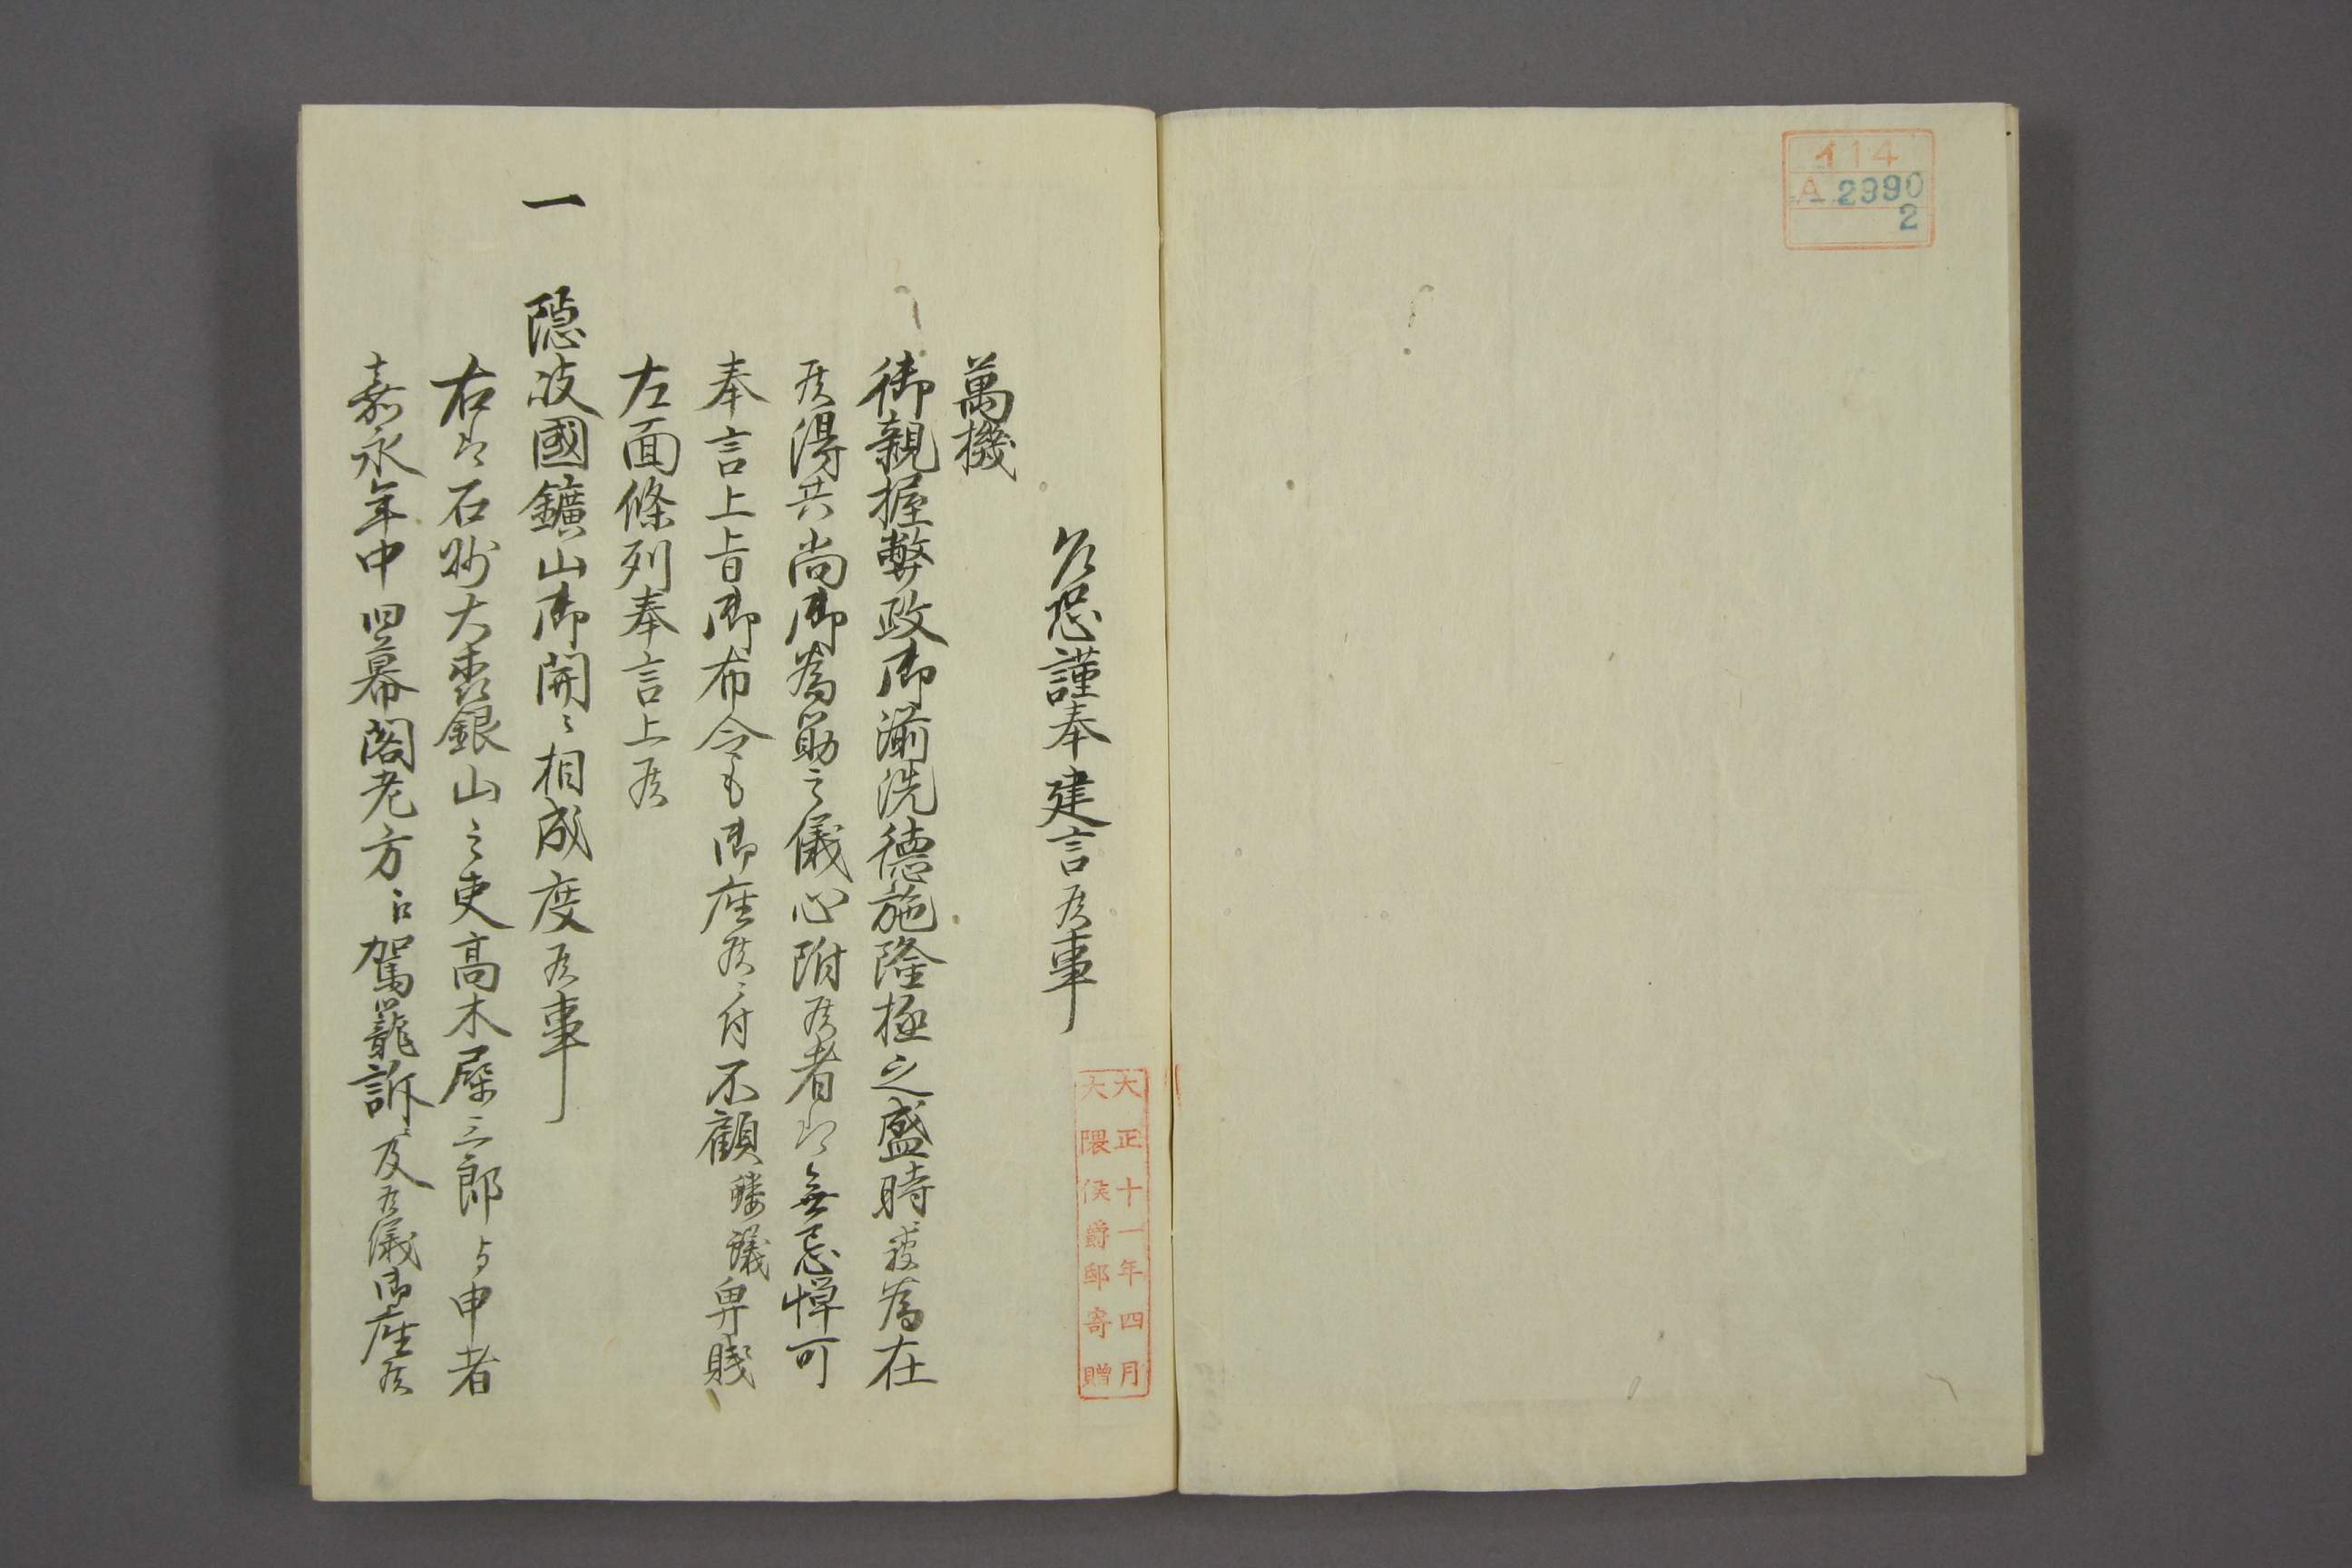 イ14
A 2990
2
乍恐謹奉建言候事
萬機
御親握弊政御湔洗德施隆極之盛時被為在
候得共尚御為筋之儀心附候者ハ無忌憚可
奉言上旨御布令も御座候ニ付不顧螻蟻卑賤
左面條列奉言上候
一 隠岐國鑛山御開ニ相成度候事
右ハ石州大森銀山之吏高木犀三郎与申者
嘉永年中旧幕閣老方ニ駕籠訴及候儀御座候
大正十一年四月
大隈侯爵邸寄贈